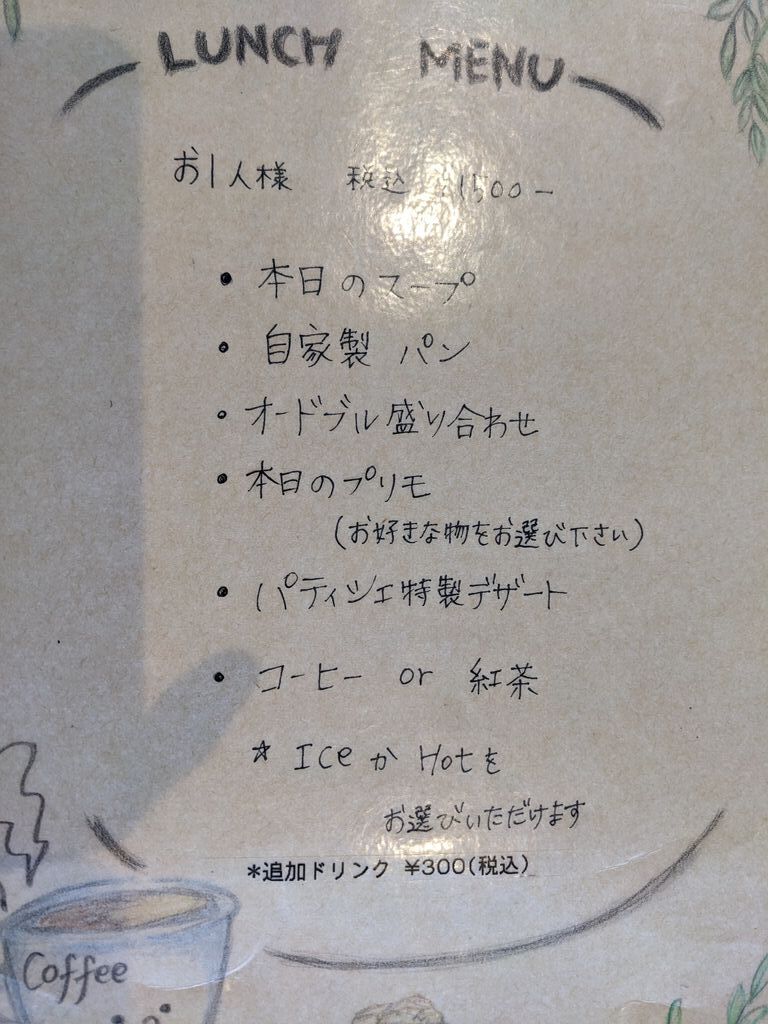 LUNCH MENU
お1人様 税込 ¥1500-
・本日のスープ
・自家製 パン
・オードブル盛り合わせ
・本日のプリモ
(お好きな物をお選び下さい)
・パティシエ特製デザート
・コーヒー or 紅茶
☆ Ice か Hot を
お選びいただけます
*追加ドリンク ¥300(税込)
Coffee